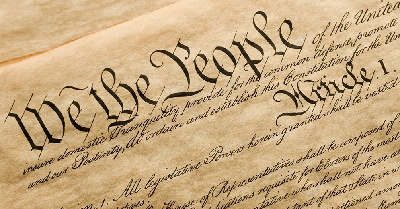 We the People of the United
insure domestic Tranquility, provide for the common defence, promote
and our Posterity, do ordain and establish this Constitution for the Uni
Article. I.
All legislative Powers herein granted shall be vested
House of Representatives shall be composed of
Qualifications requisite for Electors of the most
who shall not have
of that State in